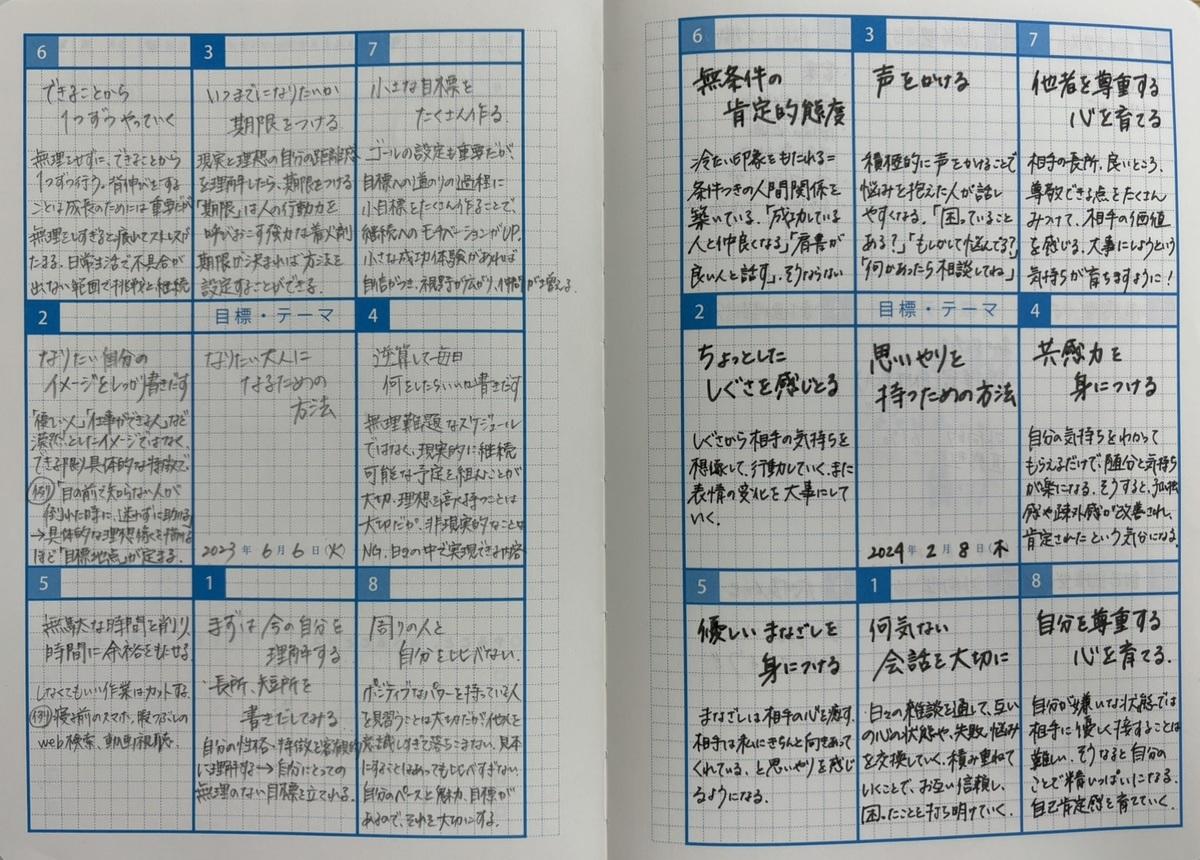 6
できることから
1つずつやっていく
無理をせずに、できることから
1つずつ行う。背伸びをする
ことは成長のためには重要だが
無理をしすぎると疲れてストレスが
たまる。日常生活で不具合が
出ない範囲で挑戦と継続
3
いつまでになりたいか
期限をつける
現実と理想の自分の距離感
を理解したら、期限をつける
「期限」は人の行動力を
呼びおこす強力な着火剤
期限が決まれば方法を
設定することができる。
7
小さな目標を
たくさん作る
ゴールの設定も重要だが、
目標への道のりの過程に
小目標をたくさん作ることで、
継続へのモチベーションがUP。
小さな成功体験があれば
自信がつき、視野が広がり、仲間が増える。
2
なりたい自分の
イメージをしっかり書きだす
「優しい人」「仕事ができる人」など
漠然としたイメージではなく、
できる限り具体的な特徴で
例 「目の前で知らない人が
倒れた時に、迷わずに助ける
→具体的な理想像を描ける
ほど「目標地点」が定まる。
目標・テーマ
なりたい大人に
なるための
方法
2023年6月6日(火)
4
逆算して毎日
何をしたらいいか書きだす
無理難題なスケジュール
ではなく、現実的に継続
可能な予定を組むことが
大切。理想を高く持つことは
大切だが、非現実的なことは
NG。自分の中で実現できる内容
5
無駄な時間を削り、
時間に余裕をもたせる
しなくてもいい作業はカットする。
例 寝る前のスマホ、暇つぶしの
web検索、動画視聴
1
まずは今の自分を
理解する
・長所、短所を
書きだしてみる
自分の性格・特徴を客観的
に理解する→自分にとっての
無理のない目標を立てれる。
8
周りの人と
自分を比べない
ポジティブなパワーを持っている人
を見習うことは大切だが他人を
意識しすぎて落ちこまない。見本
にすることはあっても比べすぎない
自分のペースと魅力、目標が
あるので、それを大切にする。
6
無条件の
肯定的態度
冷たい印象をもたれる=
条件つきの人間関係を
築いている。「成功している
人と仲良くなる」「肩書が
良い人と話す」。そうならない
3
声をかける
積極的に声をかけることで
悩みを抱えた人が話し
やすくなる。「困っていること
ある?」「もしかして悩んでる?」
「何かあったら相談してね」
7
他者を尊重する
心を育てる
相手の長所、良いところ、
尊敬できる点をたくさん
みつけて、相手の価値
を感じる。大事にしようという
気持ちが育ちますように!
2
ちょっとした
しぐさを感じとる
しぐさから相手の気持ちを
想像して、行動していく。また
表情の変化を大事にして
いく。
目標・テーマ
思いやりを
持つための方法
2024年2月8日(木)
4
共感力を
身につける
自分の気持ちをわかって
もらえるだけで、随分と気持ち
が楽になる。そうすると、孤独
感や疎外感が改善され、
肯定されたという気分になる。
5
優しいまなざしを
身につける
まなざしは相手の心を癒す。
相手は私にきちんと向きあって
くれている、と思いやりを感じ
るようになる。
1
何気ない
会話を大切に
日々の雑談を通して、互い
の心の状態や、失敗、悩み
を交換していく。積み重ねて
いくことで、お互い信頼し、
困ったことを打ち明けていく。
8
自分を尊重する
心を育てる。
自分が嫌いな状態では
相手に優しく接することは
難しい。そうなると自分の
ことで精いっぱいになる。
自己肯定感を育てていく。